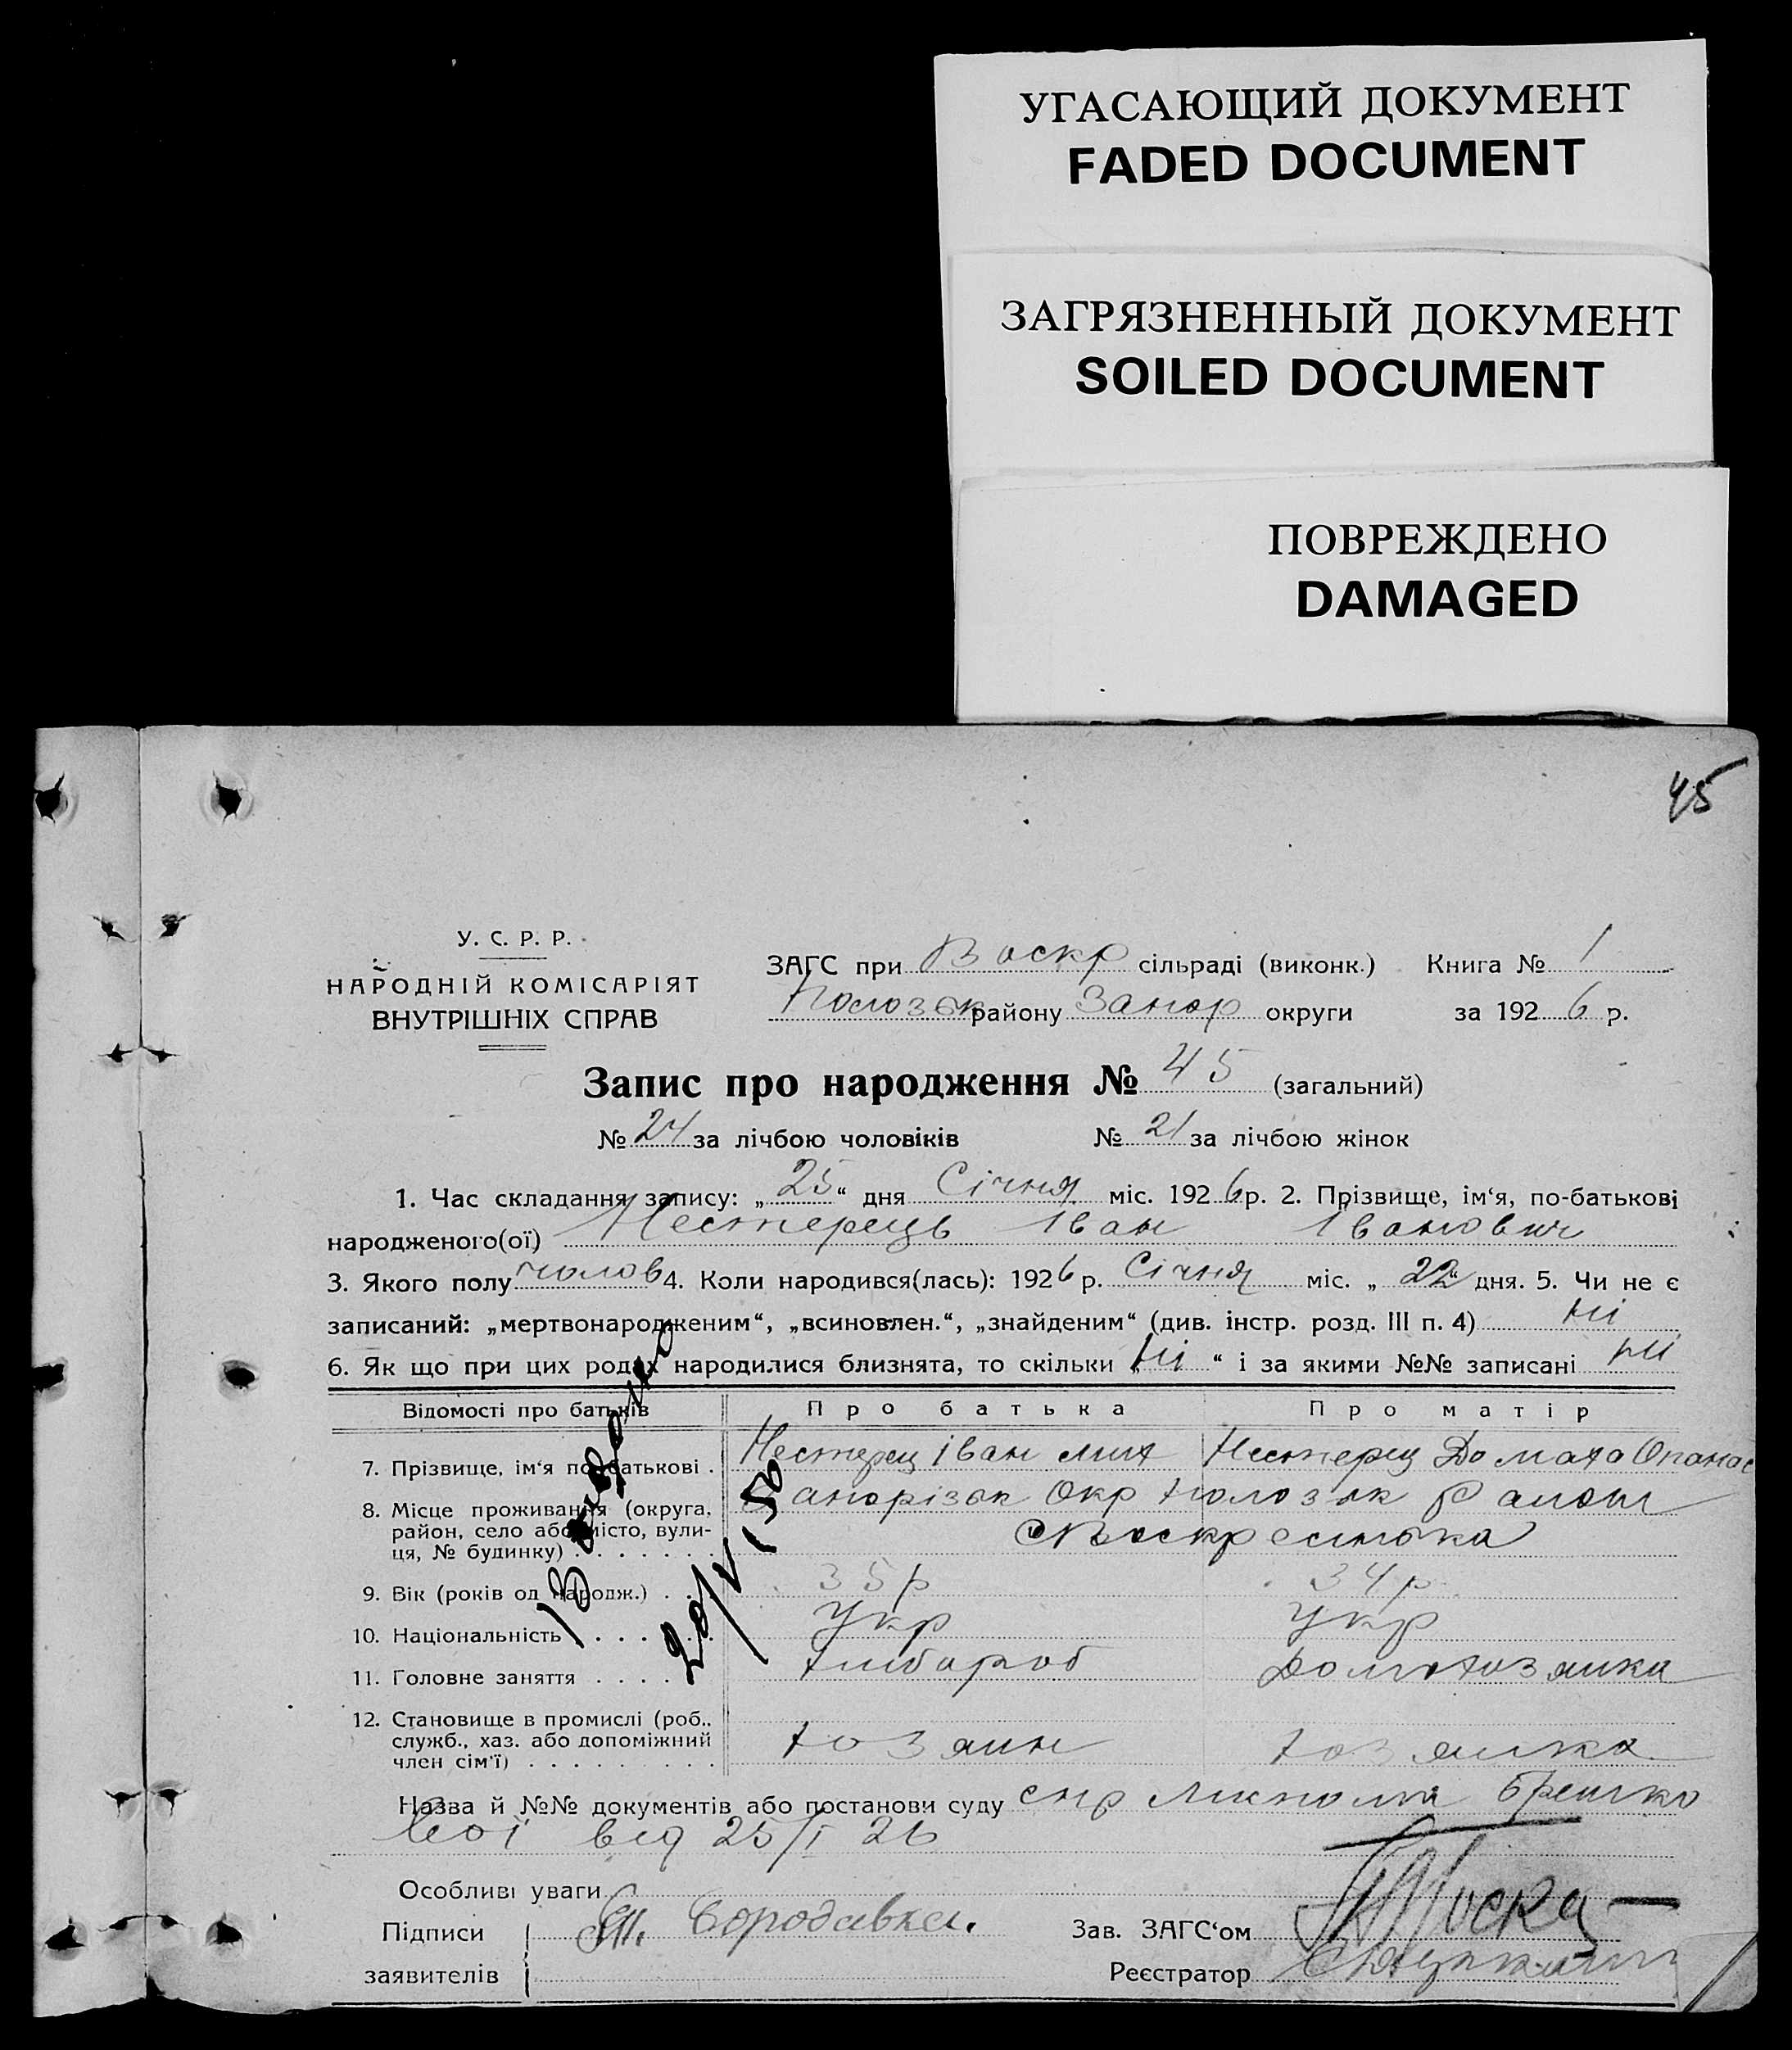 УГАСАЮЩИЙ ДОКУМЕНТ
FADED DOCUMENT
ЗАГРЯЗНЕННЫЙ ДОКУМЕНТ
SOILED DOCUMENT
ПОВРЕЖДЕНО
DAMAGED
45
У. С. Р. Р.
НАРОДНІЙ КОМІСАРІЯТ
ВНУТРІШНІХ СПРАВ
ЗАГС при Воскр сільраді (виконк.) Книга № 1
Полозьк району Запор округи за 1926 р.
Запис про народження № 45 (загальний)
№ 24 за лічбою чоловіків № 21 за лічбою жінок
1. Час складання запису: „25“ дня Січня міс. 1926 р. 2. Прізвище, ім‘я, по-батькові
народженого(ої) Нестерець Іван Іванович
3. Якого полу чолов 4. Коли народився(лась): 1926 р. Січня міс. „22“ дня. 5. Чи не є
записаний: „мертвонародженим“, „всиновлен.“, „знайденим“ (див. інстр. розд. III п. 4) ні
6. Як що при цих родах народилися близнята, то скільки „ні“ і за якими №№ записані ні
Відомості про батьків Про батька Про матір
7. Прізвище, ім‘я по-батькові . Нестерец Іван мих Нестерец Домаха Опанас
8. Місце проживання (округа, Запорізьк Окр Полозьк
район, село або місто, вули-
ця, № будинку) . . . . . . . Воскресенька
9. Вік (років од народж.) . . . 35 р 34 р
10. Національність . . . . . . Укр Укр
11. Головне заняття . . . . . хлібороб Домохозяика
12. Становище в промислі (роб.,
служб., хаз. або допоміжний
член сім‘ї) . . . . . . . . . хозяин хозяика
20/V 50
Назва й №№ документів або постанови суду
від 25/I 26
Особливі уваги
Підписи Бородавка.
заявителів
Зав. ЗАГС‘ом
Реєстратор